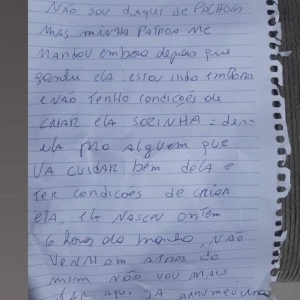 NÃO SOU DAQUI DE PALHOÇA
MAS MINHA PATROA ME
MANDOU EMBORA DEPOIS QUE
ganhei ELA. ESTOU INDO EMBORA
E NÃO TENHO CONDIÇÕES DE
CRIAR ELA SOZINHA = dem
ELA PRO ALGUEM que
VA CUIDAR bem dela E
TER CONDICOES DE CRIAR
ELA, ELA NASCEU ONTEM
6 horas da manhã, NÃO
VENHAM ATRAS DE
MIM NÃO VOU MAIS